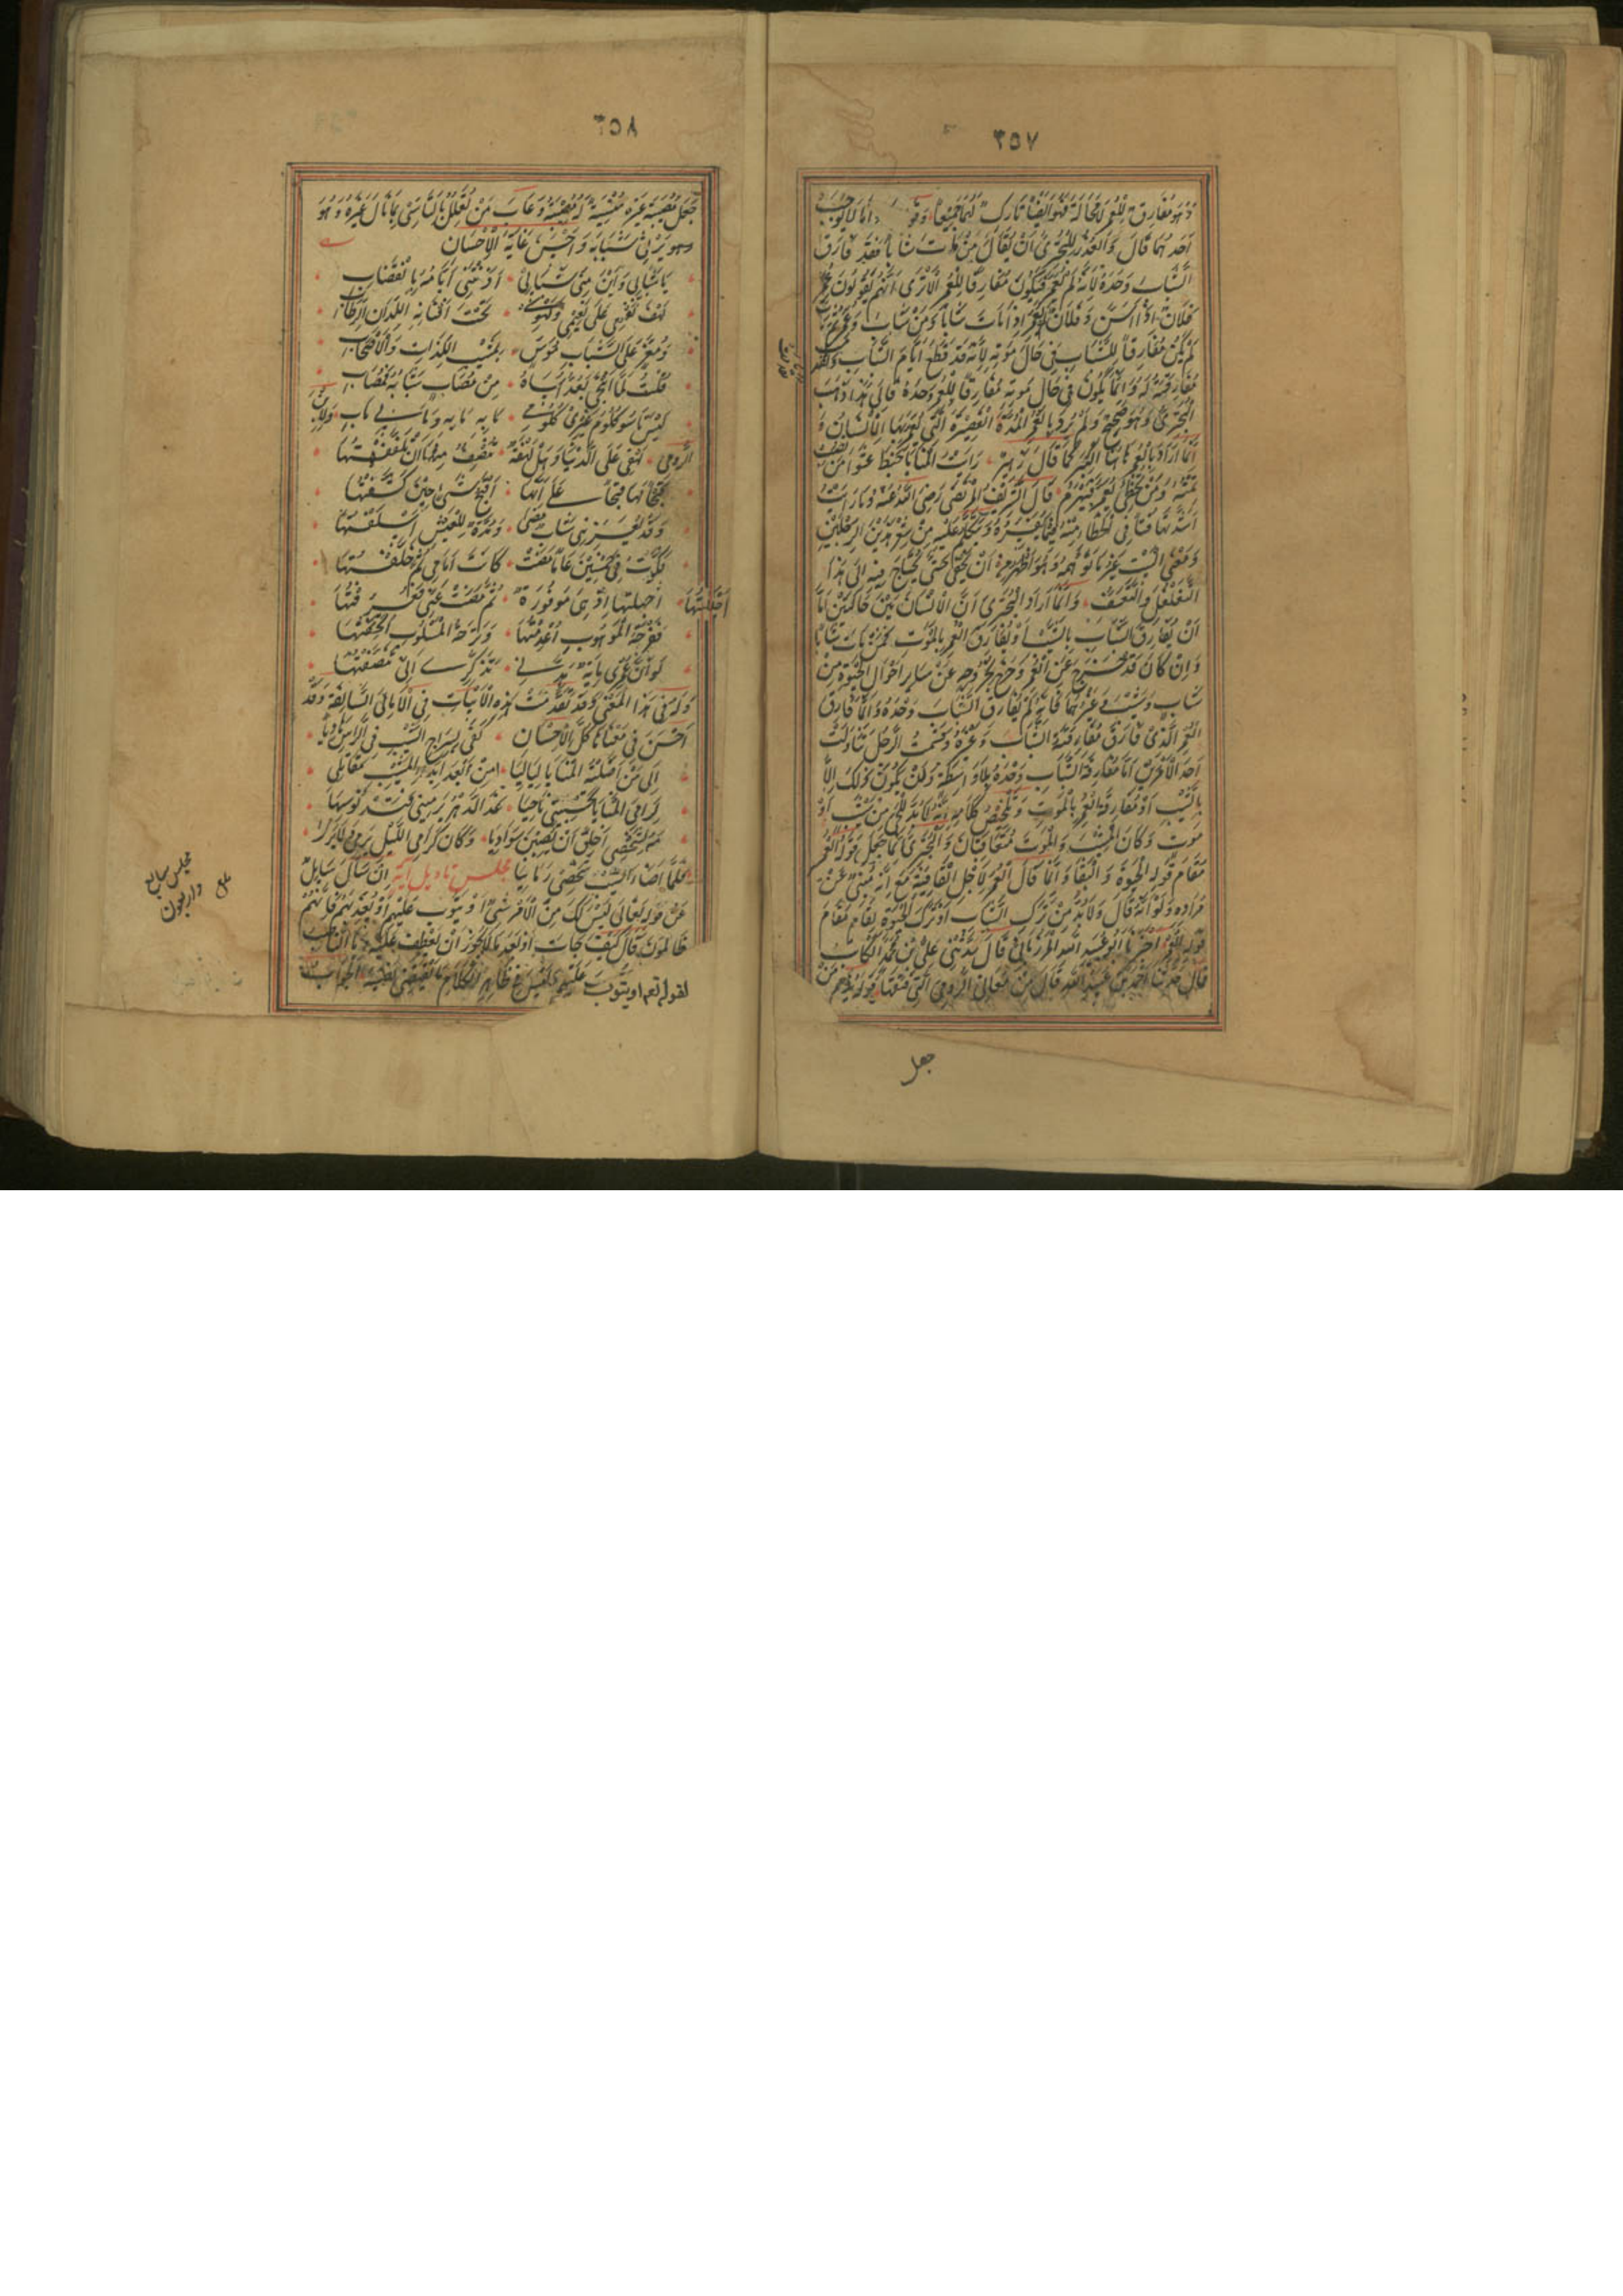 ٣٥٧
وَهُوَ مُفَارِقٌ لِلْعُمُرِ لَا مَحَالَةَ فَهُوَ اَيْضًا تَارِكٌ لَهُمَا جَمِيْعًا وَقَوْ اَمَّا لَا يُوْجِبُ
اَحَدَهُمَا قَالَ وَالْعُذْرُ لِلْبُحْتُرِيِّ اَنْ يُقَالَ مَنْ مَاتَ شَابًّا فَقَدْ فَارَقَ
الشَّبَابَ وَحْدَهُ لِاَنَّهُ لَمْ يُعَمَّرْ فَيَكُوْنَ مُفَارِقًا لِلْعُمُرِ اَلَا تَرٰى اَنَّهُمْ يَقُوْلُوْنَ عُمِّرَ
فُلَانٌ اِذَا اَسَنَّ وَفُلَانٌ لَمْ يُعَمَّرْ اِذَا مَاتَ شَابًّا وَمَنْ شَابَ وَعُمِّرَ ثُمَّ مَاتَ
لَمْ يَكُنْ مُفَارِقًا لِلشَّبَابِ فِيْ حَالِ مَوْتِهِ لِاَنَّهُ قَدْ قَطَعَ اَيَّامَ الشَّبَابِ وَتَقَدَّمَتْ
مُفَارَقَتُهُ لَهُ وَاِنَّمَا يَكُوْنُ فِيْ حَالِ مَوْتِهِ مُفَارِقًا لِلْعُمُرِ وَحْدَهُ فَاِلٰى هٰذَا ذَهَبَ
الْبُحْتُرِيُّ وَهُوَ صَحِيْحٌ وَلَمْ يُرِدْ بِالْعُمُرِ الْمُدَّةَ الْقَصِيْرَةَ الَّتِيْ يُعَمَّرُهَا الْاِنْسَانُ وَ
اِنَّمَا اَرَادَ بِالْعُمُرِ هٰهُنَا الْكِبَرَ كَمَا قَالَ زُهَيْرٌ رَاَيْتُ الْمَنَايَا خَبْطَ عَشْوَاءَ مَنْ تُصِبْ
تُمِتْهُ وَمَنْ تُخْطِئْ يُعَمَّرْ فَيَهْرَمِ قَالَ الشَّرِيْفُ الْمُرْتَضٰى رَضِيَ اللّٰهُ عَنْهُ وَمَا رَاَيْتُ
اَشَدَّ تَهَافُتًا فِي الْخَطَاءِ مِنْهُ فِيْمَا يُفَسِّرُهُ وَيَتَكَلَّمُ عَلَيْهِ مِنْ شِعْرِ هٰذَيْنِ الرَّجُلَيْنِ
وَمَعْنَى الْبَيْتِ غَيْرُ مَا تَوَهَّمَهُ وَهُوَ اَظْهَرُ مِنْ اَنْ يَخْفٰى حَتّٰى يُحْتَاجَ فِيْهِ اِلٰى هٰذَا
التَّغَلْغُلِ وَالتَّعَسُّفِ وَاِنَّمَا اَرَادَ الْبُحْتُرِيُّ اَنَّ الْاِنْسَانَ بَيْنَ حَالَتَيْنِ اِمَّا
اَنْ يُفَارِقَ الشَّبَابَ بِالشَّيْبِ اَوْ يُفَارِقَ الْعُمُرَ بِالْمَوْتِ فَمَنْ مَاتَ شَابًّا
وَاِنْ كَانَ قَدْ خَرَجَ عَنِ الْعُمُرِ وَخَرَجَ بِخُرُوْجِهِ عَنْ سَايِرِ اَحْوَالِ الْحَيٰوةِ مِنْ
شَبَابٍ وَشَيْبٍ وَغَيْرِهِمَا فَاِنَّهُ لَمْ يُفَارِقِ الشَّبَابَ وَحْدَهُ وَاِنَّمَا فَارَقَ
الْعُمُرَ الَّذِيْ فَارَقَ مُفَارَقَتَهُ الشَّبَابَ وَغَيْرَهُ وَقِسْمَةُ الرَّجُلِ تَنَاوَلَتْ
اَحَدَ الْاَمْرَيْنِ اِمَّا مُفَارَقَةَ الشَّبَابِ وَحْدَهُ بِلَا وَاسِطَةٍ وَلَنْ يَكُوْنَ ذٰلِكَ اِلَّا
بِالشَّيْبِ اَوْ مُفَارَقَةَ الْعُمُرِ بِالْمَوْتِ وَتَلْخِيْصُ كَلَامِهِ اَنَّهُ لَا بُدَّ لِلْحَيِّ مِنْ شَيْبٍ اَوْ
مَوْتٍ وَكَانَ الشَّيْبَ وَالْمَوْتَ مُتَعَاقِبَانِ وَالْبُحْتُرِيُّ اِنَّمَا جَعَلَ قَوْلَهُ الْعُمُرَ
مَقَامَ قَوْلِهِ الْحَيٰوةَ وَالْبَقَاءَ وَاِنَّمَا قَالَ الْعُمُرَ لِاَجْلِ الْقَافِيَةِ مَعَ اَنَّهُ مُنْبِئٌ عَنْ
مُرَادِهِ وَلَوْ اَنَّهُ قَالَ وَلَا بُدَّ مِنْ تَرْكِ الشَّبَابِ اَوْ تَرْكِ الْحَيٰوةِ لَقَامَ مَقَامَ
قَوْلِهِ الْعُمُرَ اَخْبَرَنَا اَبُوْ عُبَيْدِ اللّٰهِ الْمَرْزُبَانِيُّ قَالَ حَدَّثَنِيْ عَلِيُّ بْنُ مُحَمَّدٍ الْكَاتِبُ
قَالَ حَدَّثَنَا اَحْمَدُ بْنُ عُبَيْدِ اللّٰهِ قَالَ مِنْ مَعَانِي الرُّوْمِيِّ الَّتِيْ فَتَقَهَا قَوْلُهُ يَذُمُّ مَنْ
جعل
٣٥٨
جَعَلَ مُصِيْبَةَ غَيْرِهِ مُنْسِيَةً لَهُ مُصِيْبَتَهُ وَعَابَ مَنْ تَعَلَّلَ بِالتَّاَسِّيْ بِمَا نَالَ غَيْرَهُ وَهُوَ
وهو يَرْثِيْ شَبَابَهُ وَاَحْسَنَ غَايَةَ الْاِحْسَانِ
يَا شَبَابِيْ وَاَيْنَ مِنِّيْ شَبَابِيْ اٰذَنَتْنِيْ اَيَّامُهُ بِانْقِضَابِ
لَهْفَ نَفْسِيْ عَلٰى نَعِيْمِيْ وَلَهْوِيْ تَحْتَ اَفْنَانِهِ اللِّدَانِ الرِّطَابِ
وَمُعَزٍّ عَلَى الشَّبَابِ مُؤَسٍّ بِمَشِيْبِ اللِّدَاتِ وَالْاَصْحَابِ
قُلْتُ لَمَّا انْتَحٰى يَعُدُّ اُسَاهُ مِنْ مُصَابٍ شَبَابُهُ كَمُصَابِيْ
لَيْسَ تَاسُوْ كُلُوْمُ غَيْرِيْ كُلُوْمِيْ مَا بِهِ مَا بِهِ وَمَا بِيْ مَا بِيْ وَلِابْنِ
الرُّوْمِيِّ لَهْفِيْ عَلَى الدُّنْيَا وَهَلْ لَهْفَةٌ تُنْصِفُ مِنْهَا اِنْ تَلَهَّفْتُهَا
قُبْحًا لَهَا قُبْحًا عَلٰى اَنَّهَا اَقْبَحُ شَيْءٍ حِيْنَ كَشَفْتُهَا
وَقَدْ يُعَزِّيْنِيْ شَبَابٌ مَضٰى وَمُدَّةٌ لِلْعَيْشِ اَسْلَفْتُهَا
فَكَّرْتُ فِيْ خَمْسِيْنَ عَامًا مَضَتْ كَانَتْ اَمَامِيْ ثُمَّ خَلَّفْتُهَا
اَجْهَلْتُهَا اِذْ هِيَ مَوْفُوْرَةٌ ثُمَّ مَضَتْ عَنِّيْ فَعَرَفْتُهَا
فَفَرْحَةُ الْمَوْهُوْبِ اُعْدِمْتُهَا وَتَرْحَةُ الْمَسْلُوْبِ اُلْحِفْتُهَا
لَوْ اَنَّ عُمْرِيْ مِايَةٌ هَدَّنِيْ تَذَكُّرِيْ اَنِّيْ تَنَصَّفْتُهَا
وَلَهُ فِيْ هٰذَا الْمَعْنٰى وَقَدْ تَقَدَّمَتْ هٰذِهِ الْاَبْيَاتُ فِي الْاَمَالِيْ السَّالِفَةِ وَقَدْ
اَحْسَنَ فِيْ مَعْنَاهَا كُلَّ الْاِحْسَانِ كَفٰى بِسِرَاجِ الشَّيْبِ فِي الرَّاْسِ هَادِيًا
اِلٰى مَنْ اَضَلَّتْهُ الْمَنَايَا لَيَالِيَا اَمِنْ بَعْدِ اِبْدَاءِ الْمَشِيْبِ مَقَاتِلِيْ
لِرَامِي الْمَنَايَا تَحْسَبِيْنِيْ نَاجِيَا غَدَا الدَّهْرُ يَرْمِيْنِيْ فَتَدْنُوْ سِهَامُهُ
لِشَخْصِيْ اَخْلِقْ اَنْ يُصِبْنَ سَوَادِيَا وَكَانَ كَرَامِي اللَّيْلِ يَرْمِيْ وَلَا يَرٰى
فَلَمَّا اَضَاءَ الشَّيْبُ شَخْصِيْ رَمَانِيَا مجلس تاويل اٰية اِنْ سَاَلَ سَايِلٌ
عَنْ قَوْلِهِ تَعَالٰى لَيْسَ لَكَ مِنَ الْاَمْرِ شَيْءٌ اَوْ يَتُوْبَ عَلَيْهِمْ اَوْ يُعَذِّبَهُمْ فَاِنَّهُمْ
ظَالِمُوْنَ قَالَ كَيْفَ جَاءَتْ اَوْ بَعْدَ مَا لَا يَجُوْزُ اَنْ يُعْطَفَ عَلَيْهِ وَمَا النَّاصِبُ
لقوله تعم او يَتُوْبَ عَلَيْهِمْ وَلَيْسَ فِيْ ظَاهِرِ الْكَلَامِ مَا يَقْتَضِيْ نَصْبَهُ الْجَوَابُ
مجلس سابع
واربعون